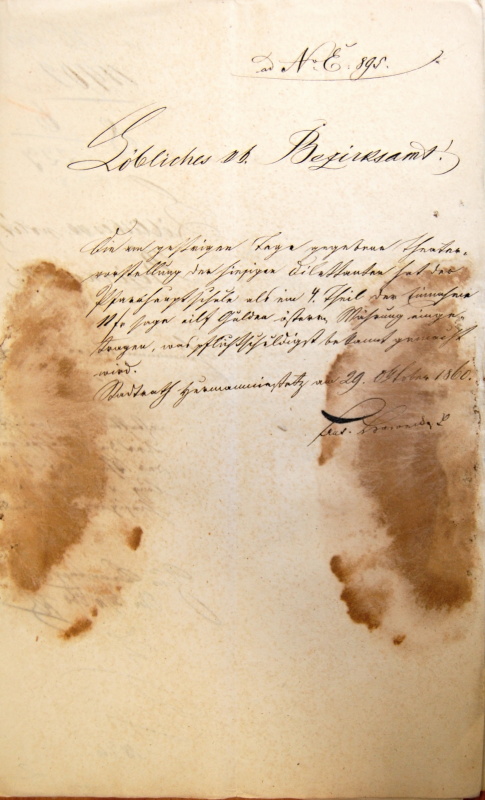 ad No. E. 895.
Löbliches k. k. Bezirksamt!
Die am gestrigen Tage gegebene Theater-
vorstellung der hiesigen Dilettanten hat der
Pfarrhauptschule als ein 4. Theil der Einnahme
11 f sage eilf Gulden österr. Währung einge-
tragen, was pflichtschuldigst bekannt gemacht
wird.
Stadtrath Hermannmiestetz am 29. Oktober 1860.